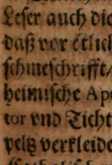 Leser auch die
daß vor etlich
schmeschrifft/
heimische Ap
tor vnd Ticht
peltz verkleid